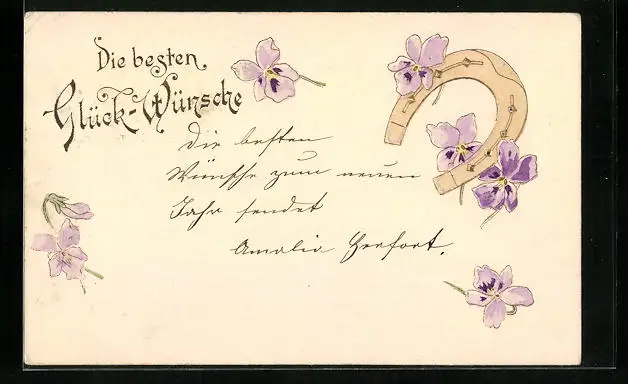 Die besten
Glück-Wünsche
Die besten
Wünsche zum neuen
Jahr sendet
Amalia Herfort.